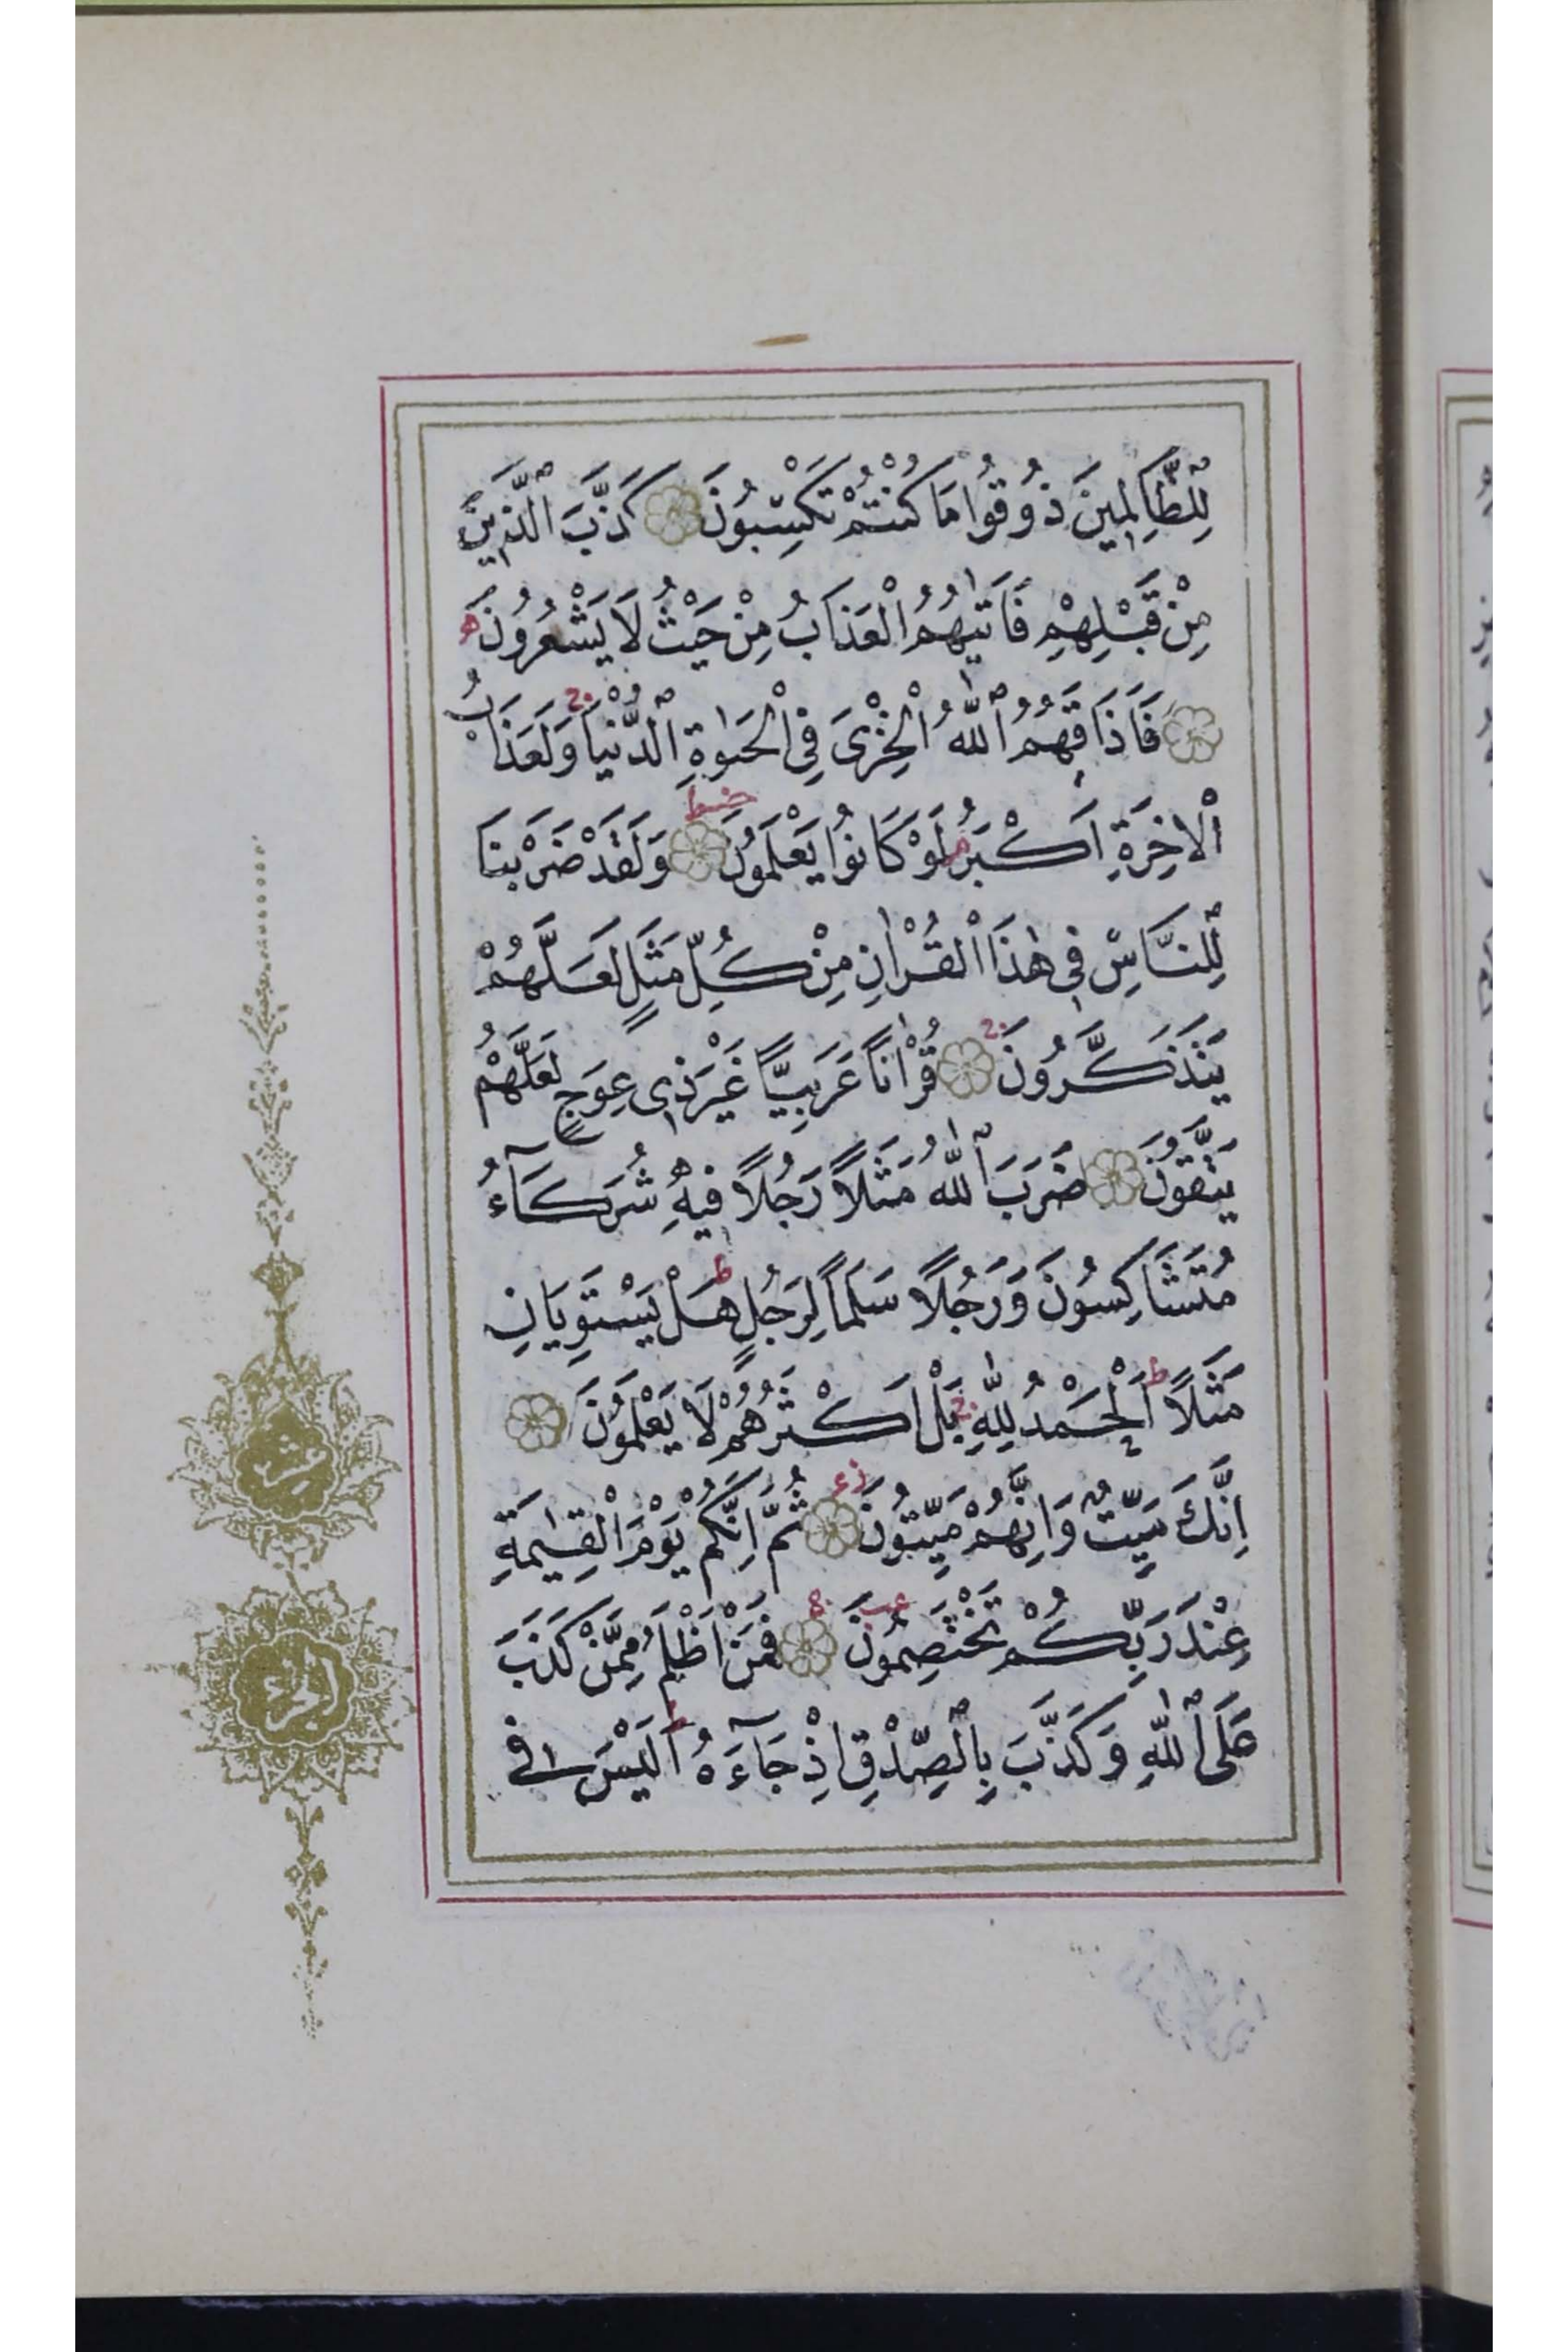 لِلظَّالِمِينَ ذُوقُوا مَا كُنْتُمْ تَكْسِبُونَ كَذَّبَ الَّذِينَ
مِنْ قَبْلِهِمْ فَاَتٰيهُمُ الْعَذَابُ مِنْ حَيْثُ لَا يَشْعُرُونَ
فَاَذَاقَهُمُ اللّٰهُ الْخِزْىَ فِى الْحَيٰوةِ الدُّنْيَا وَلَعَذَابُ
الْاٰخِرَةِ اَكْبَرُ لَوْ كَانُوا يَعْلَمُونَ وَلَقَدْ ضَرَبْنَا
لِلنَّاسِ فِى هٰذَا الْقُرْاٰنِ مِنْ كُلِّ مَثَلٍ لَعَلَّهُمْ
يَتَذَكَّرُونَ قُرْاٰنًا عَرَبِيًّا غَيْرَ ذِى عِوَجٍ لَعَلَّهُمْ
يَتَّقُونَ ضَرَبَ اللّٰهُ مَثَلًا رَجُلًا فِيهِ شُرَكَآءُ
مُتَشَاكِسُونَ وَرَجُلًا سَلَمًا لِرَجُلٍ هَلْ يَسْتَوِيَانِ
مَثَلًا اَلْحَمْدُ لِلّٰهِ بَلْ اَكْثَرُهُمْ لَا يَعْلَمُونَ
اِنَّكَ مَيِّتٌ وَاِنَّهُمْ مَيِّتُونَ ثُمَّ اِنَّكُمْ يَوْمَ الْقِيٰمَةِ
عِنْدَ رَبِّكُمْ تَخْتَصِمُونَ فَمَنْ اَظْلَمُ مِمَّنْ كَذَبَ
عَلَى اللّٰهِ وَكَذَّبَ بِالصِّدْقِ اِذْ جَآءَهُ اَلَيْسَ فِى
عشر
الجزء